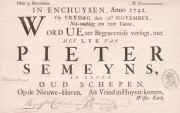 IN ENCHUYSEN, Anno 1742.
Op VRYDAG den 16e NOVEMBER,
Na-middag ten twee Uuren,
WORD UE ter Begraavenisse verzogt, met
HET LYK VAN
PIETER
SEMEYNS,
IN LEVEN
OUD SCHEPEN.
Op de Nieuwe-Haven. Als Vriend in Huys te komen.
Wester Kerk.